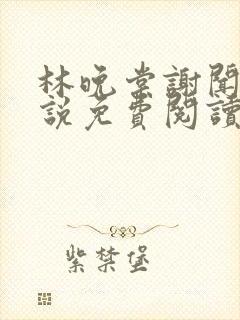 林晚棠謝聞
說免費閱讀
紫禁堡